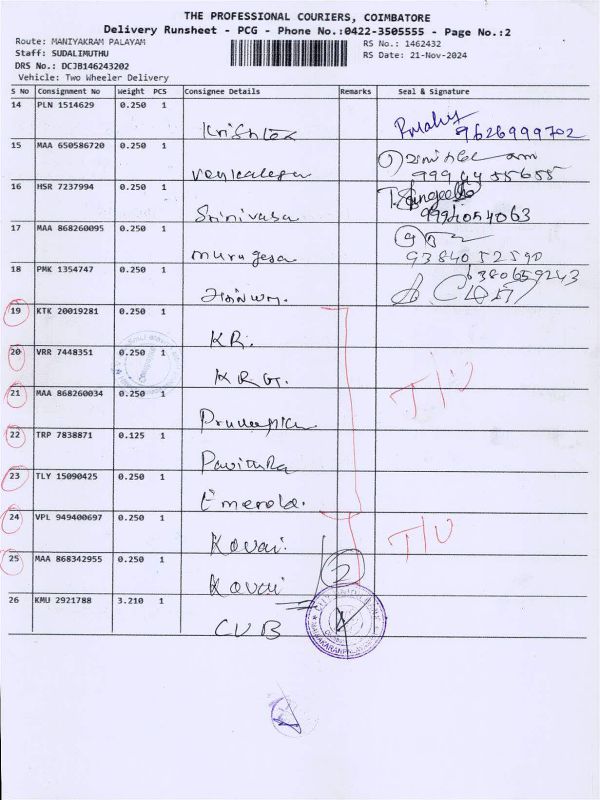 THE PROFESSIONAL COURIERS, COIMBATORE
Delivery Runsheet - PCG - Phone No.:0422-3505555 - Page No.:2
Route: MANIYAKRAM PALAYAM
RS No.: 1462432
Staff: SUDALIMUTHU
RS Date: 21-Nov-2024
DRS No.: DCJB146243202
Vehicle: Two Wheeler Delivery
S No Consignment No Weight PCS Consignee Details Remarks Seal & Signature
14 PLN 1514629 0.250 1
9626999702
15 MAA 650586720 0.250 1
9994455655
16 HSR 7237994 0.250 1
Srinivasa 9994054063
17 MAA 868260095 0.250 1
murugesa 9384052590
18 PMK 1354747 0.250 1 6380659243
19 KTK 20019281 0.250 1
KR.
20 VRR 7448351 0.250 1
KRG.
21 MAA 868260034 0.250 1 T/U
22 TRP 7838871 0.125 1
Pavitura
23 TLY 15090425 0.250 1
24 VPL 949400697 0.250 1 T/U
Kovai.
25 MAA 868342955 0.250 1
Kovai
26 KMU 2921788 3.210 1
CUB